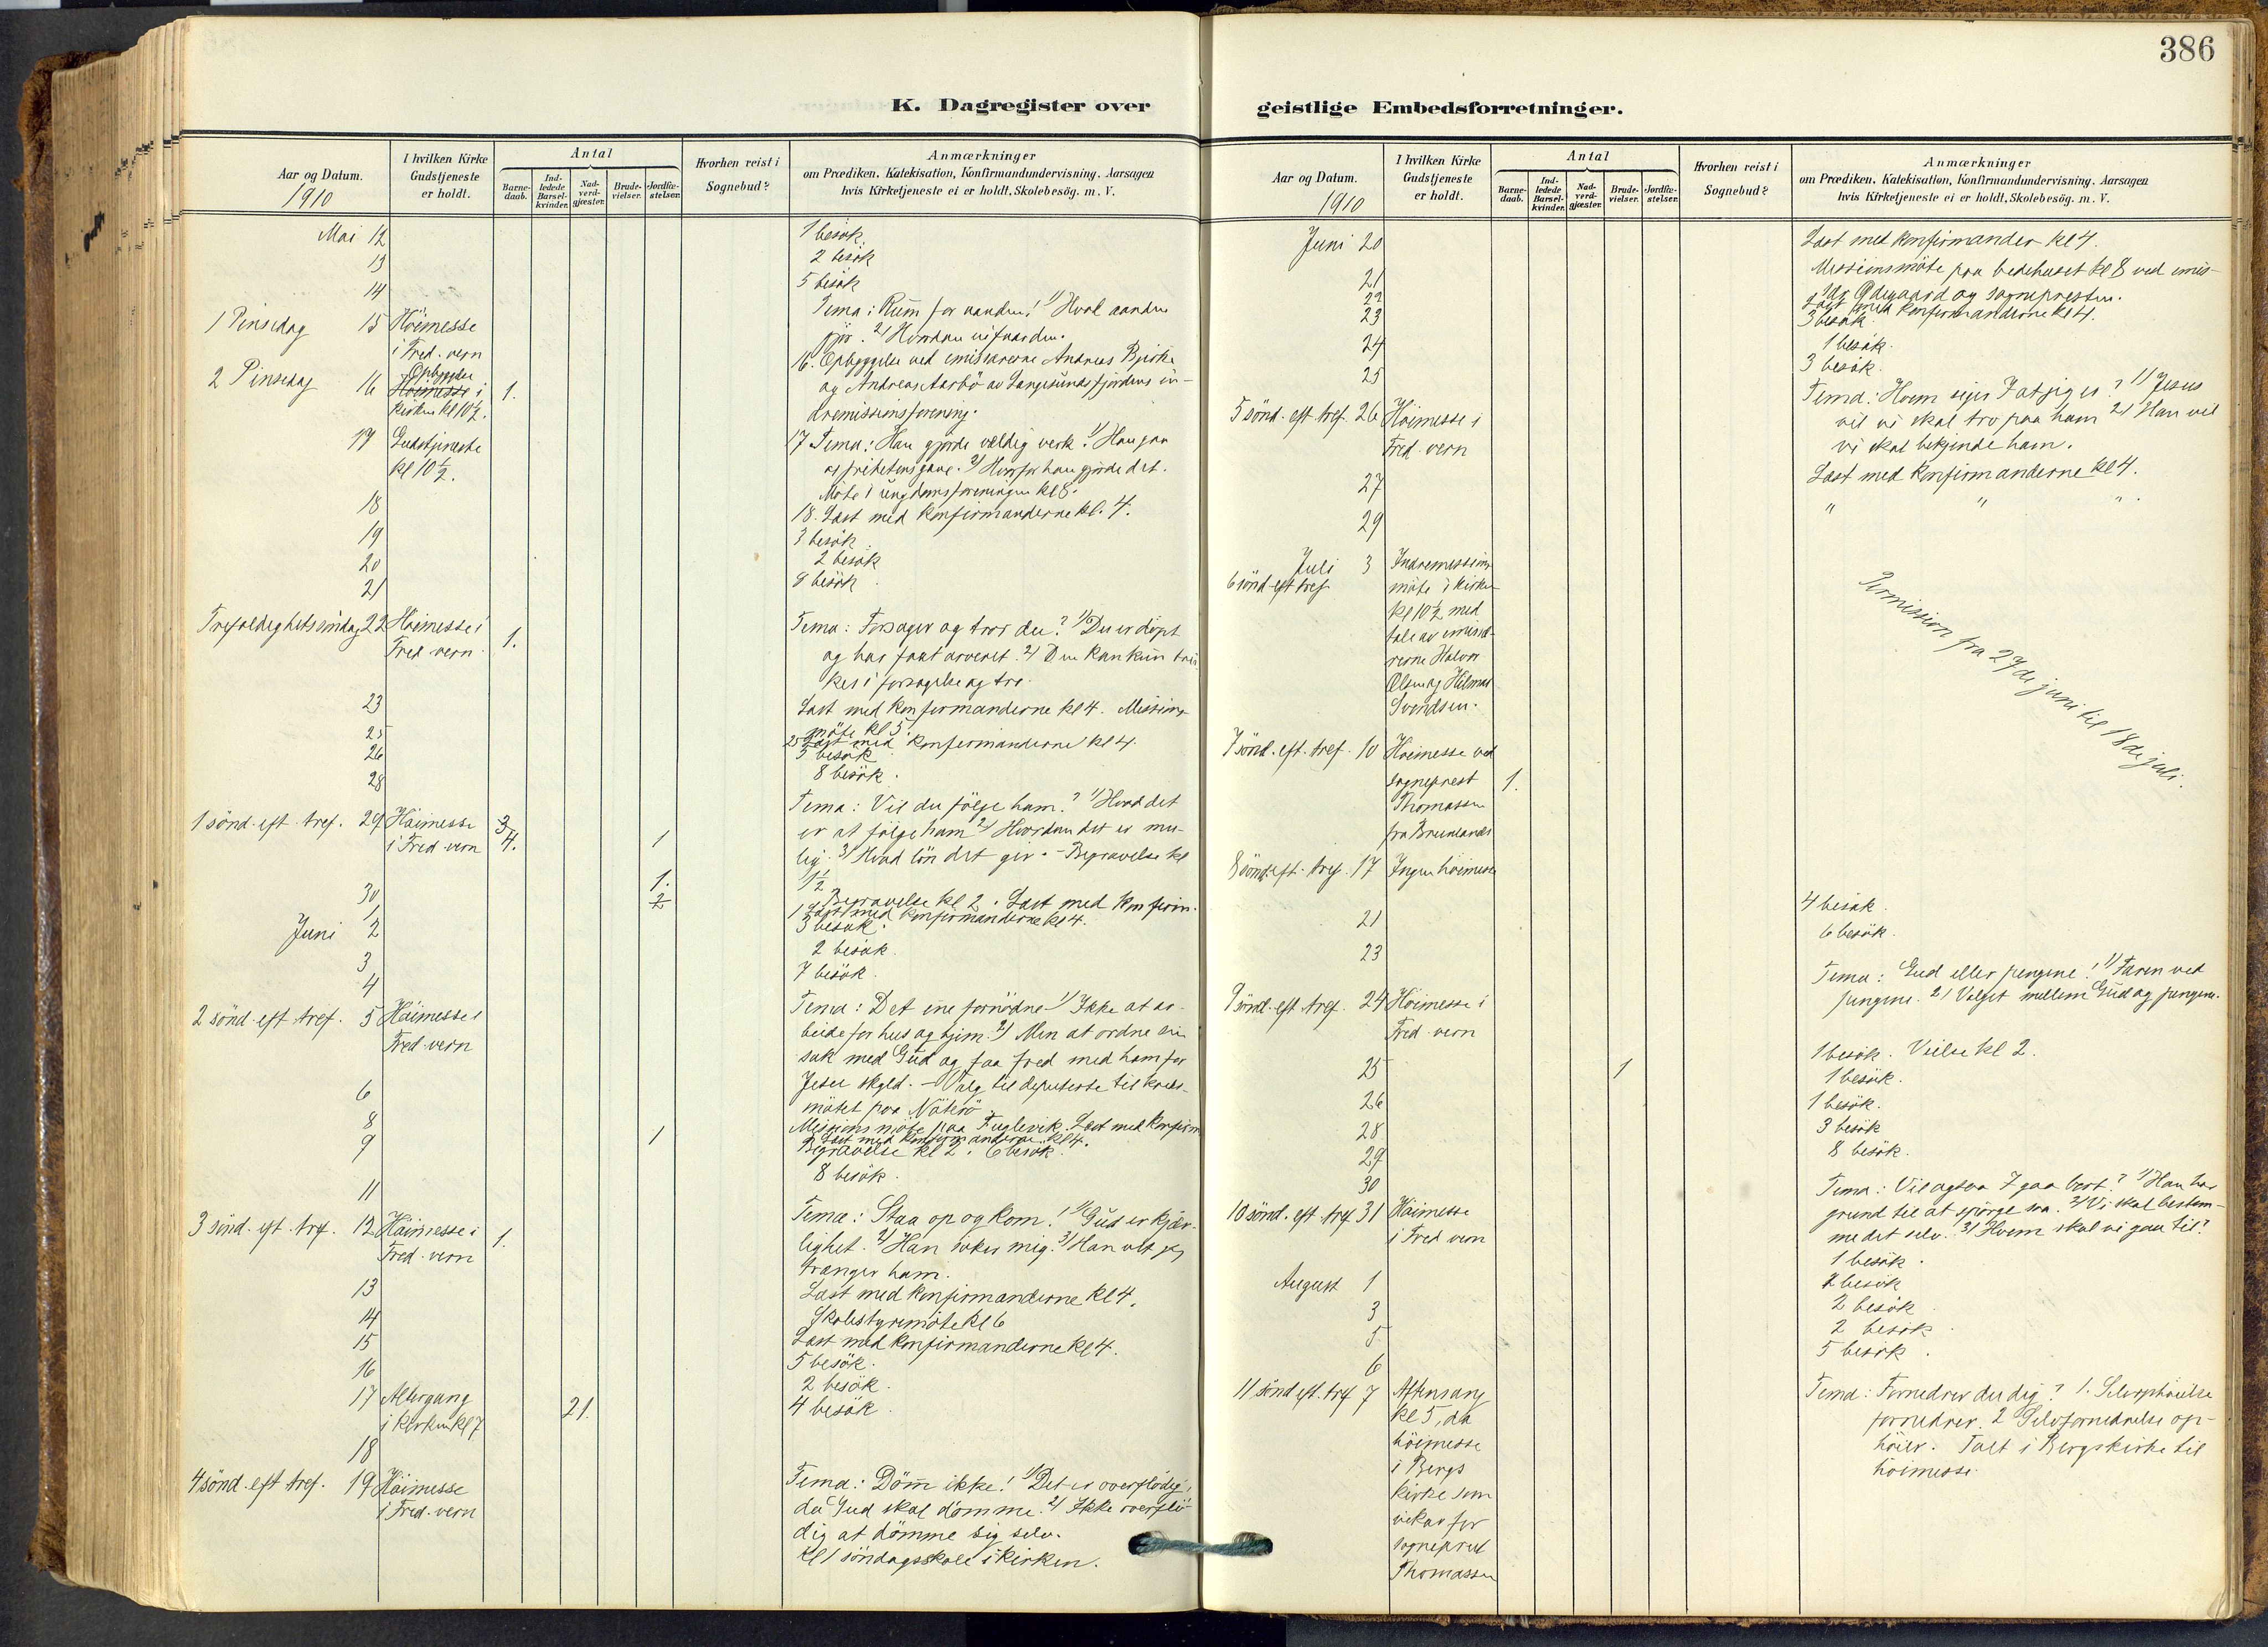 386
K. Dagregister over
geistlige Embedsforretninger.
Aar og Datum.
1910
I hvilken Kirke
Gudstjeneste
er holdt.
Antal
Barne-
daab.
Ind-
ledede
Barsel-
kvinder.
Nad-
verd-
gjæster.
Brude-
vielser.
Jordfæ-
stelser.
Hvorhen reist i
Sognebud?
Anmærkninger
om Prædiken, Katekisation, Konfirmandundervisning, Aarsagen
hvis Kirketjeneste ei er holdt, Skolebesög. m. V.
Mai 12 1 besök.
13 2 besök
14 5 besök
1 Pinsedag 15 Höimesse
i Fred. vern
Tema: Rum for aanden! 1) Hvad aanden
gjör. 2) Hvordan vi faar den.
2 Pinsedag 16 Opbyggelse
Höimesse i
kirken kl 10½. 1.
16. Opbyggelse ved emissærerne Andreas Bjerke
og Andreas Aarbö av Langesundsfjordens in-
dremissionsforening.
17 Gudstjeneste
kl 10½.
17 Tema: Han gjorde veldig verk! 1) Han gav
os frihetens gave. 2) Hvorfor han gjorde det.
Möte i ungdomsforeningen kl 8.
18 18. Læst med konfirmanderne kl. 4.
19 3 besök
20 2 besök
21 8 besök
Trefoldighetssöndag 22 Höimesse i
Fred. vern 1.
Tema: Forsager og tror du? 1) Du er döpt
og har faat arveret. 2) Den kan kun
kes i forsagelse og tro.
23 Læst med konfirmanderne kl 4. Missions-
möte kl 5.
25 25 Læst med konfirmanderne kl 4.
26 3 besök
28 8 besök.
1 sönd. eft. tref. 29 Höimesse
i Fred. vern 3 4. 1
Tema: Vil du fölge ham? 1) Hvad det
er at fölge ham 2) Hvordan det er mu-
lig. 3) Hvad lön det gir. - Begravelse kl
1½
30 1. Begravelse kl 2. Læst med konfirm.
1 2 1 Læst med konfirmanderne kl 4.
Juni 2 3 besök.
3 2 besök
4 7 besök.
2 sönd. eft. tref. 5 Höimesse i
Fred. vern
Tema: Det ene fornödne 1) Ikke at ar-
beide for hus og hjem. 2) Men at ordne sin
sak med Gud og faa fred med ham for
Jesu skyld. - Valg til deputerte til
mötet paa Nöterö.
6 Missionsmöte paa Fuglevik. Læst med konfirm
8 8 Læst med konfirmanderne kl 4.
9 1 Begravelse kl 2. 6 besök.
11 8 besök.
3 sönd. eft. tref. 12 Höimesse i
Fred. vern 1.
Tema: Staa op og kom! 1) Gud er kjær-
lighet. 2) Han söker mig. 3) Han vet jeg
trænger ham.
13 Læst med konfirmanderne kl 4.
14 Skolestyremöte kl 6
15 Læst med konfirmanderne kl 4.
16 5 besök.
17 Altergang
i kirken kl 7 21.
2 besök.
18 4 besök
4 sönd. eft. tref. 19 Höimesse
i Fred. vern
Tema: Döm ikke! 1) Det er overflödig,
da Gud skal dömme. 2) Ikke overflö-
dig at dömme sig selv.
Kl 1 söndagsskole i kirken.
Aar og Datum.
1910
I hvilken Kirke
Gudstjeneste
er holdt.
Antal
Barne-
daab.
Ind-
ledede
Barsel-
kvinder.
Nad-
verd-
gjæster.
Brude-
vielser.
Jordfæ-
stelser.
Hvorhen reist i
Sognebud?
Anmærkninger
om Prædiken, Katekisation, Konfirmandundervisning, Aarsagen
hvis Kirketjeneste ei er holdt, Skolebesög. m. V.
Juni 20 Læst med konfirmander kl 4.
21 Missionsmöte paa bedehuset kl 8 ved emis-
sær Ödegaard og sognepresten.
22 Læst med konfirmanderne kl 4.
23 3 besök
24 1 besök.
25 3 besök.
5 sönd. eft. tref. 26 Höimesse i
Fred. vern
Tema: Hvem siger I at jeg er? 1) Jesus
vil vi skal tro paa ham 2) Han vil
vi skal bekjende ham.
27 Læst med konfirmanderne kl 4.
29 " " "
Permission fra 27de juni til 18de juli.
Juli 3
6 sönd. eft tref.
Indremissions-
möte i kirken
kl 10½ med
tale av emisæ-
rerne Halvor
Olsen og Hilmar
Svendsen.
7 sönd. eft. tref. 10 Höimesse ved
sogneprest 1.
Thomassen
fra Brunlanes
8 sönd. eft. tref. 17 Ingen höimesse
21 4 besök.
23 6 besök.
9 sönd. eft. tref. 24 Höimesse i
Fred. vern
Tema: Gud eller pengene! 1) Faren ved
pengene. 2) Valget mellem Gud og pengene.
25 1 1 besök. Vielse kl 2.
26 1 besök.
28 1 besök.
29 3 besök
30 8 besök.
10 sönd. eft. tref 31 Höimesse
i Fred. vern
Tema: Vil ogsaa I gaa bort? 1) Han har
grund til at spörge saa. 2) Vi skal bestem-
me det selv. 3) Hvem skal vi gaa til?
1 besök.
August 1 2 besök
3 2 besök
5 2 besök
6 5 besök.
11 sönd eft. tref 7 Aftensang
kl 5, da
höimesse
i Bergs
kirke som
vikar for
sogneprest
Thomassen
Tema: Fornedrer du dig? 1. Selvophöielse
fornedrer. 2 Selvfornedrelse op-
höier. Talt i Bergs kirke til
höimesse.